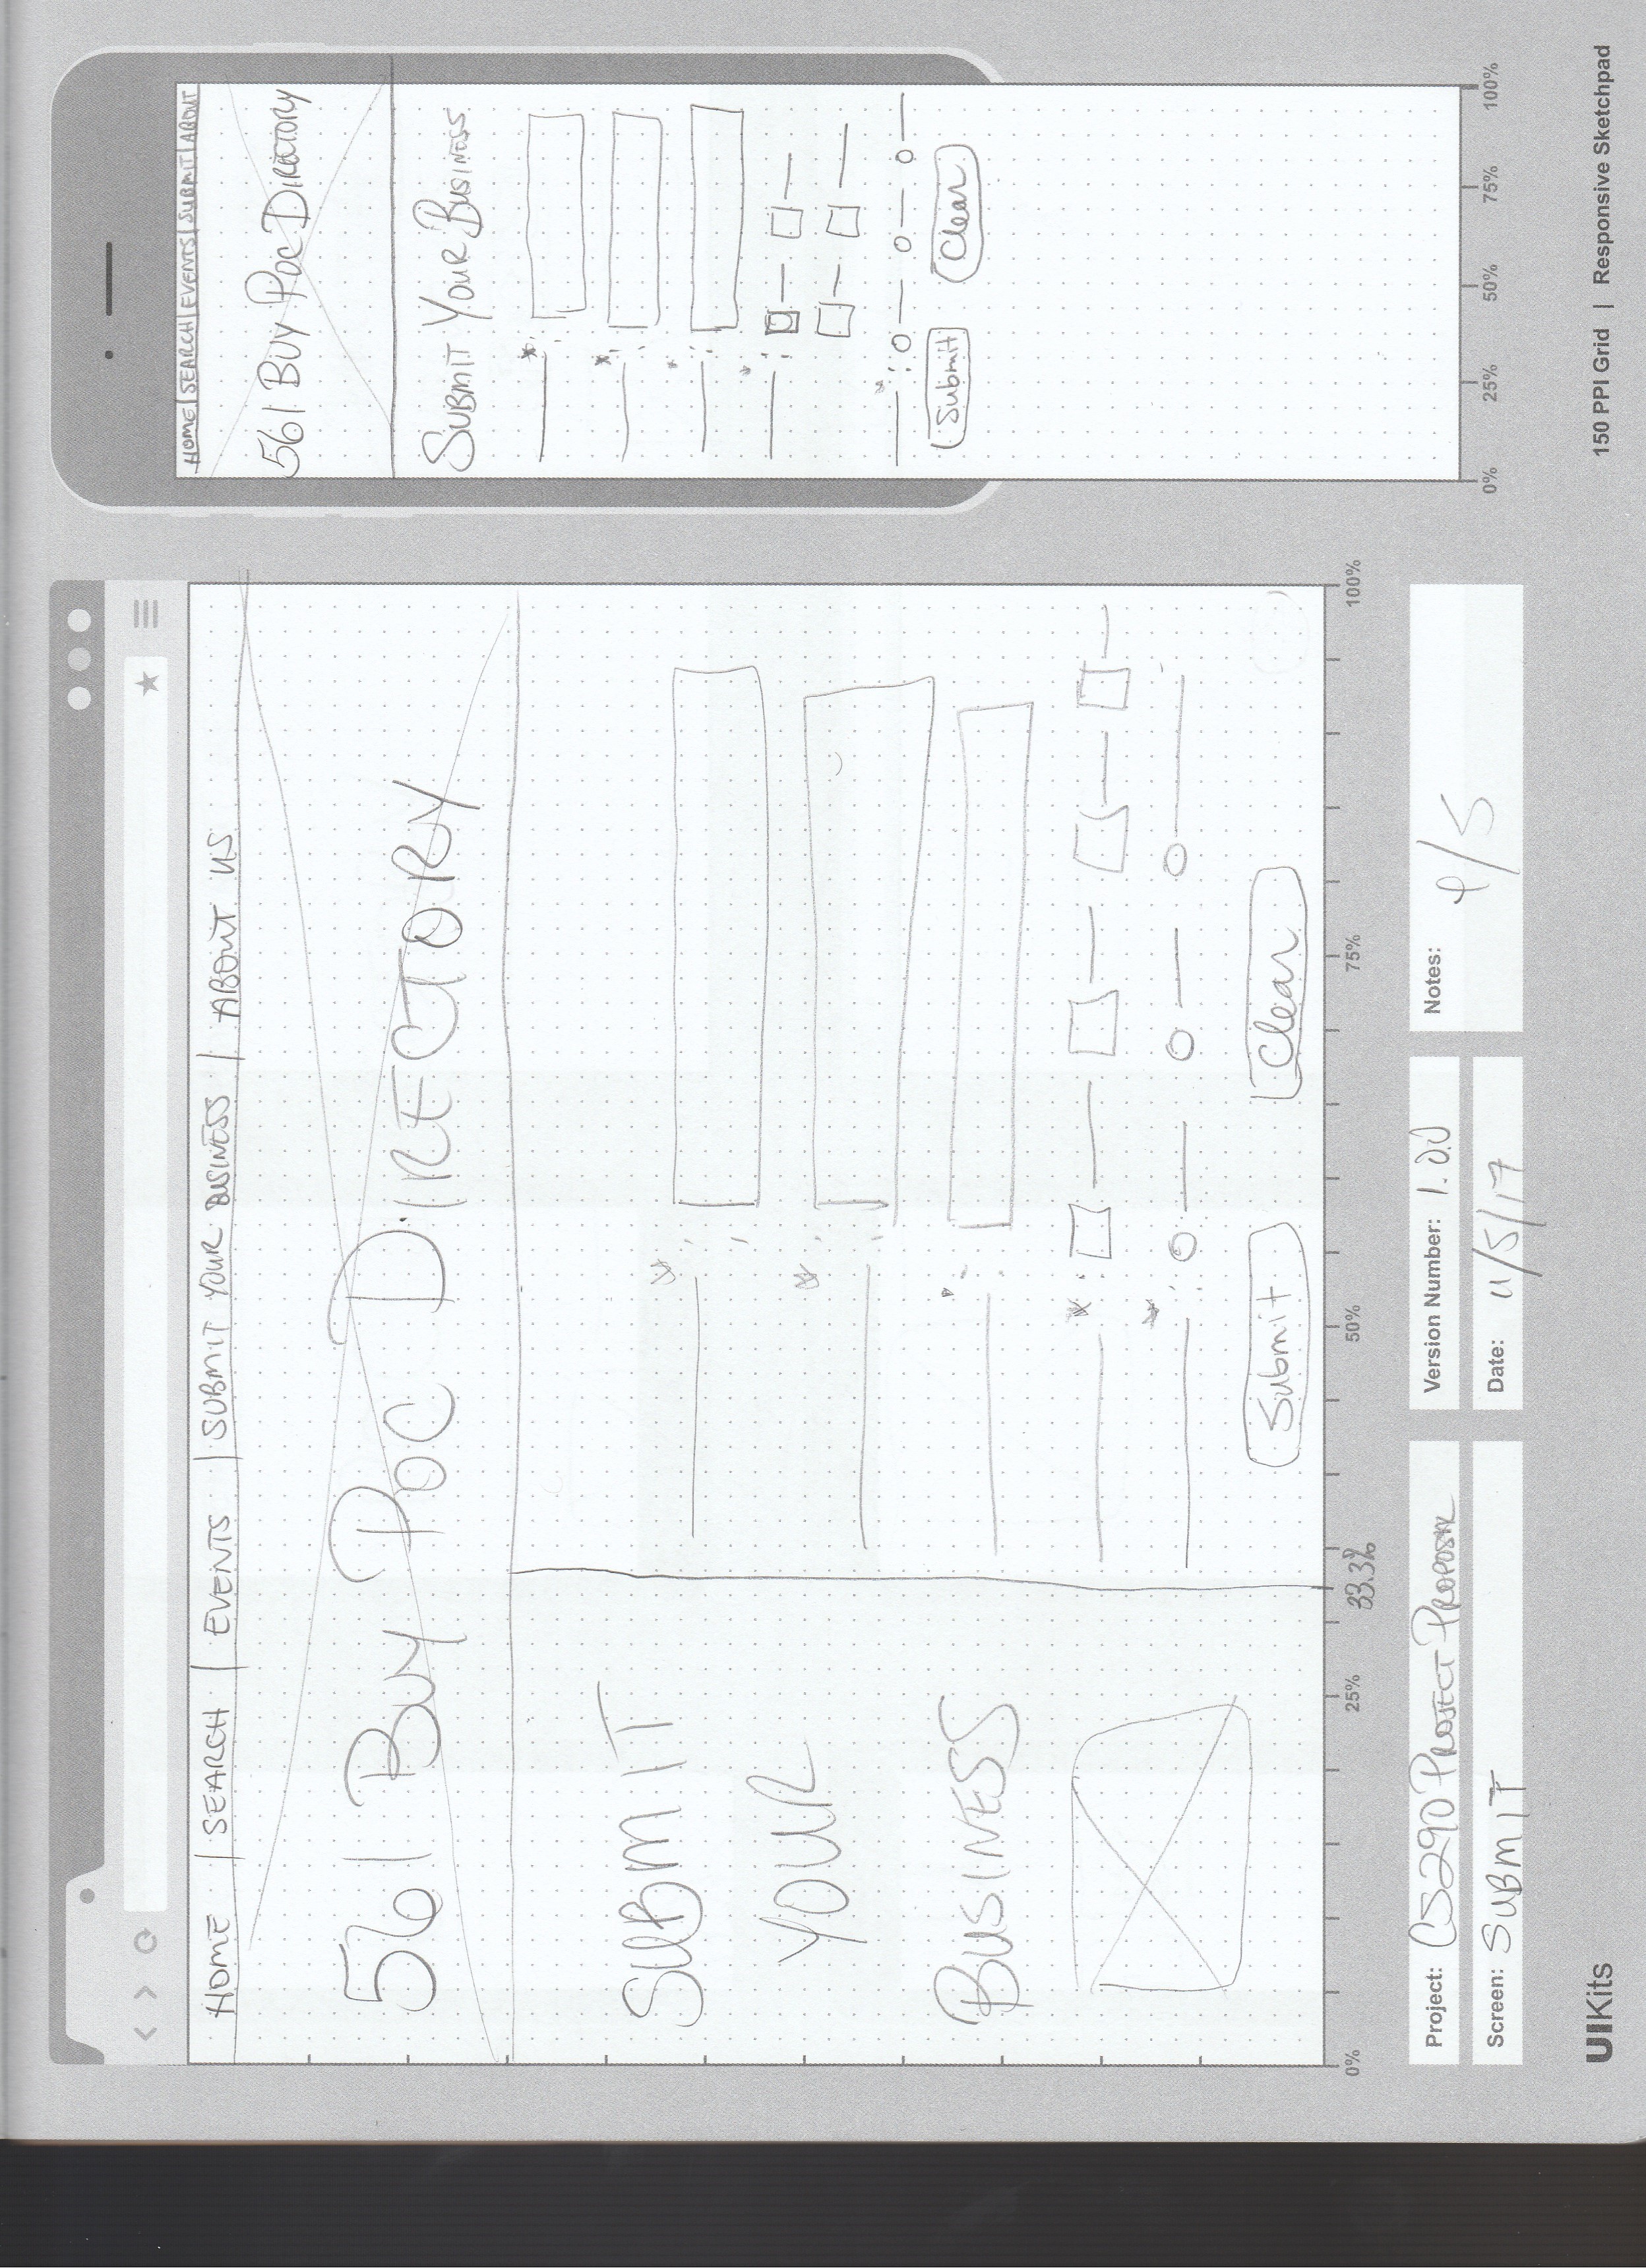 HOME | SEARCH | EVENTS | SUBMIT YOUR BUSINESS | ABOUT US
561 BUY POC DIRECTORY
SUBMIT
YOUR
BUSINESS
* :
* :
* :
* :
* :
Submit Clear
0% 25% 33.3% 50% 75% 100%
Project: CS290 PROJECT PROPOSAL
Version Number: 1.00
Notes: 4/5
Screen: SUBMIT
Date: 11/5/17
HOME | SEARCH | EVENTS | SUBMIT | ABOUT
561 BUY POC DIRECTORY
SUBMIT YOUR BUSINESS
* :
* :
* :
* :
* :
Submit Clear
0% 25% 50% 75% 100%
UIKits
150 PPI Grid | Responsive Sketchpad